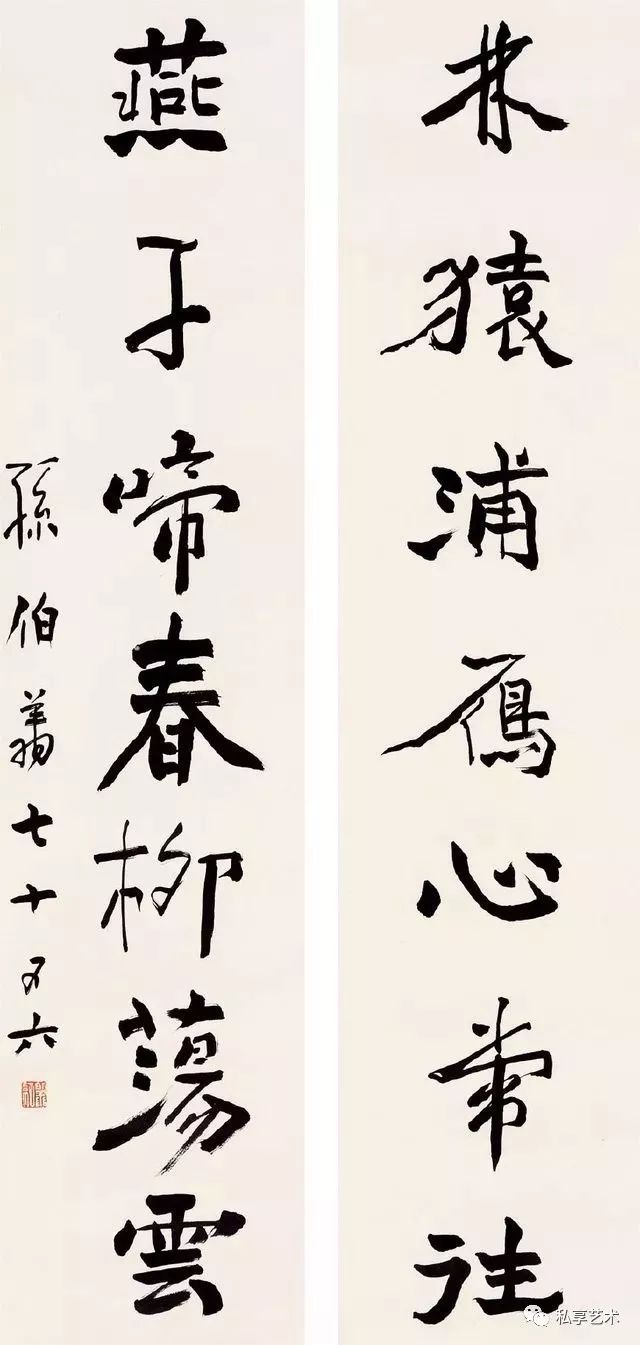 林猿浦鴈心常往
燕子啼春柳蕩雲
孫伯翁七十又六
私享艺术